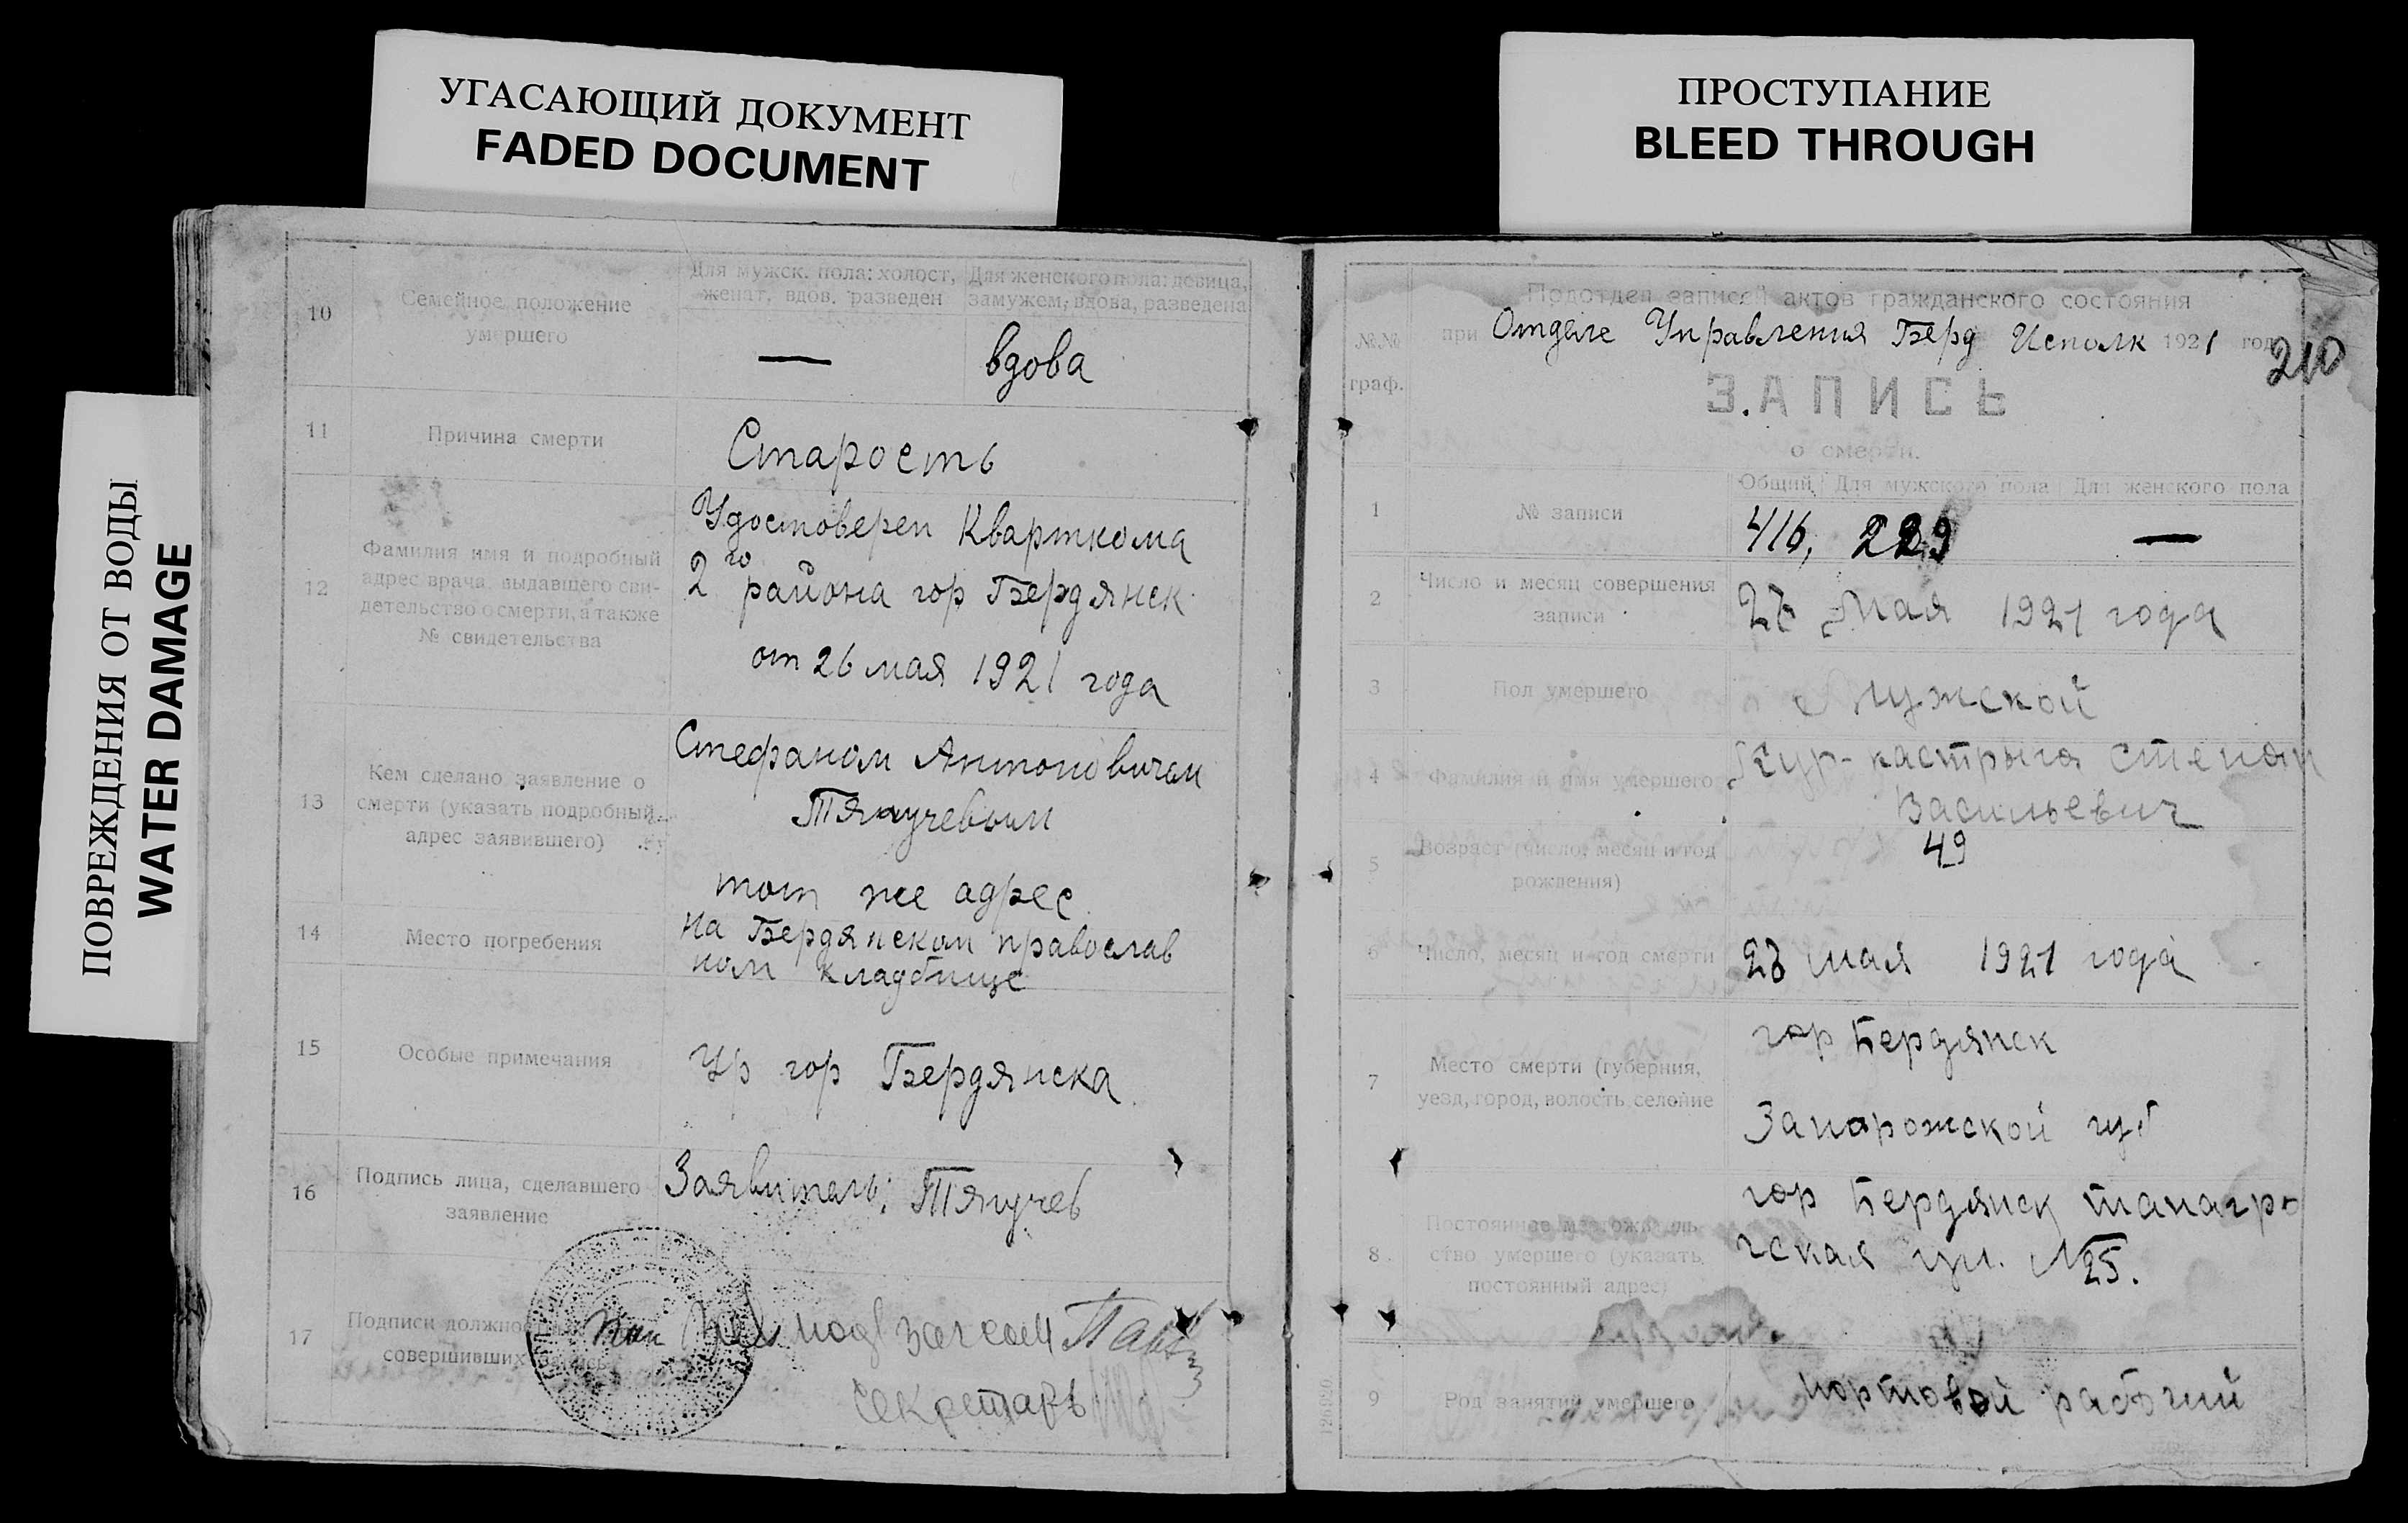 УГАСАЮЩИЙ ДОКУМЕНТ
FADED DOCUMENT
ПРОСТУПАНИЕ
BLEED THROUGH
ПОВРЕЖДЕНИЯ ОТ ВОДЫ
WATER DAMAGE
10
Семейное положение
умершего
Для мужск. пола: холост,
женат, вдов. разведен
Для женского пола: девица,
замужем, вдова, разведена
—
вдова
11
Причина смерти
Старость
12
Фамилия имя и подробный
адрес врача, выдавшего сви-
детельство о смерти, а также
№ свидетельства
Удостоверен Кварткома
2го района гор Бердянск
от 26 мая 1921 года
13
Кем сделано заявление о
смерти (указать подробный
адрес заявившего)
Стефаном Антоновичем
Тягучевым
тот же адрес
14
Место погребения
на Бердянском православ
ном кладбище
15
Особые примечания
Ур гор Бердянска
16
Подпись лица, сделавшего
заявление
Заявитель: Тягучев
17
Подписи должност
совершивших запись
загсом
Секретарь
Подотдел записей актов гражданского состояния
№№
граф.
при Отделе Управления Берд Исполк 1921 год
210
ЗАПИСЬ
о смерти.
1
№ записи
Общий Для мужского пола Для женского пола
416, 229 —
2
Число и месяц совершения
записи
27 Мая 1921 года
3
Пол умершего
Мужской
4
Фамилия и имя умершего
Степан
Васильевич
5
Возраст (число, месяц и год
рождения)
49
6
Число, месяц и год смерти
23 мая 1921 года
7
Место смерти (губерния,
уезд, город, волость, селение
гор Бердянск
Запарожской губ
8
Постоянное местожитель-
ство умершего (указать
постоянный адрес)
гор Бердянск танагро
гская ул. № 25.
9
Род занятий умершего
портовой рабочий